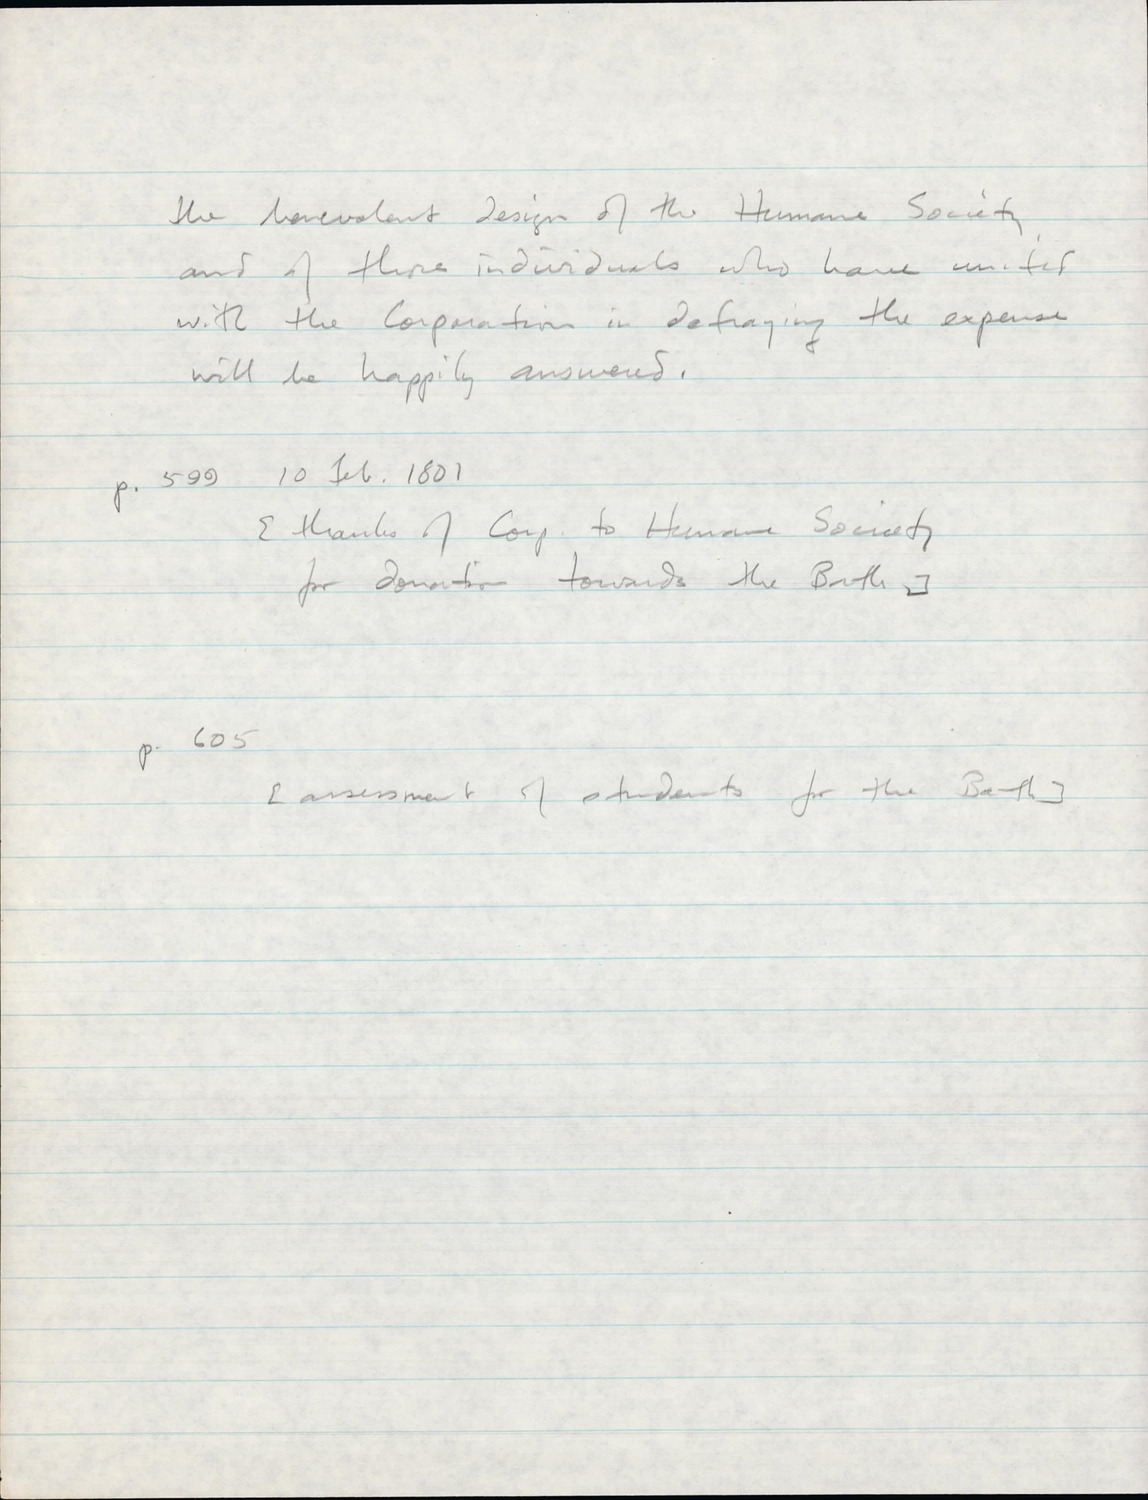 the benevolent design of the Humane Society
and of those individuals who have united
with the Corporation in defraying the expense
will be happily answered.
p. 599 10 Feb. 1801
[ thanks of Corp. to Humane Society
for donation towards the Bath ]
p. 605
[ assessment of students for the Bath ]